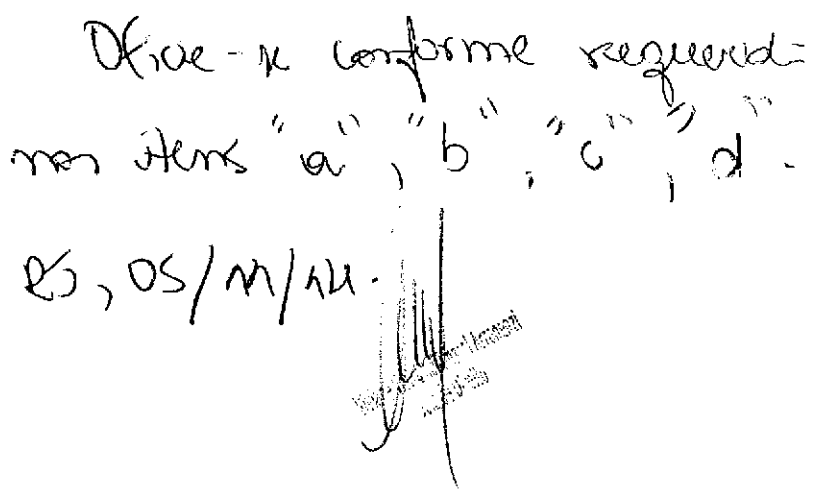 Oficie-se conforme requerido
nos itens "a", "b", "c", "d".
RJ, 05/11/14.